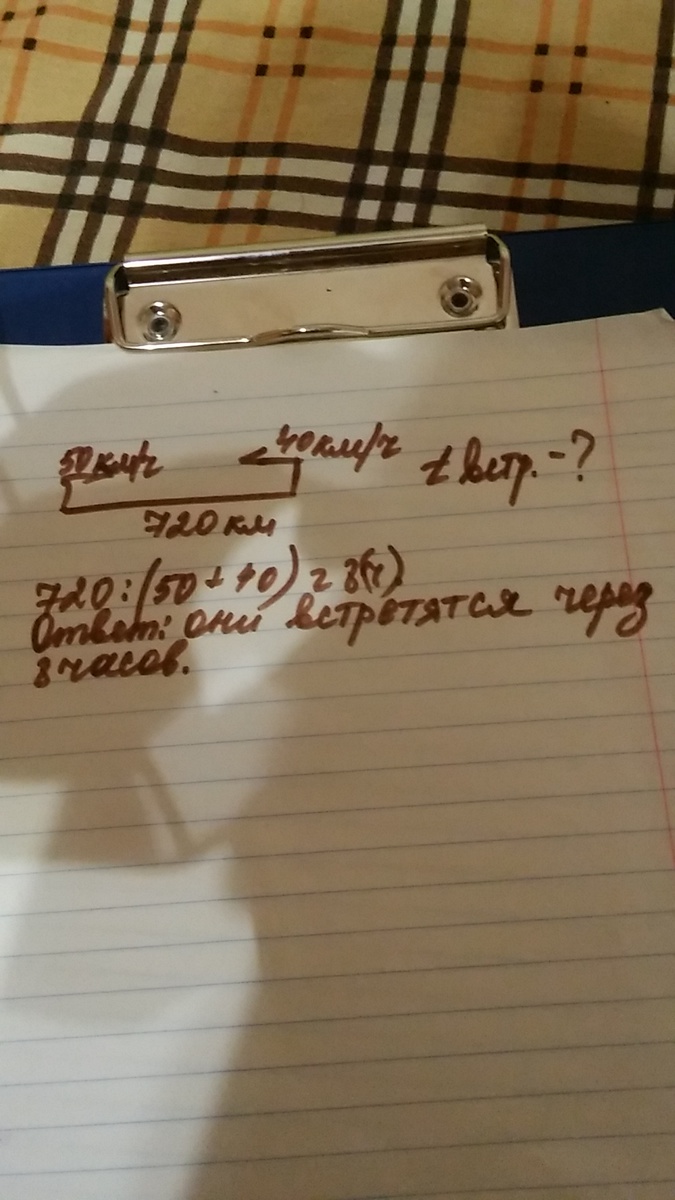 50км/ч 40км/ч t встр. - ?
720 км
720 : (50 + 40) = 8(ч)
Ответ: они встретятся через
8 часов.